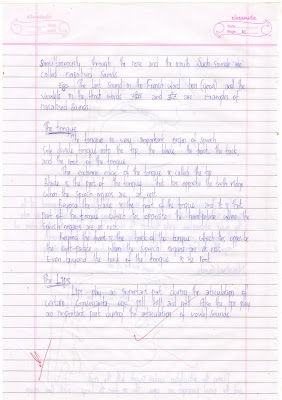 Simultaneously through the nose and the mouth. Such sounds are
called nasalised sounds.
Egs: The last sound in the French word bon (good) and the
vowels in the Hindi words and are examples of
nasalised sounds.
The tongue
The tongue is very important organ of speech.
We divide tongue into the tip, the blade, the front, the back
and the root of the tongue.
The extreme edge of the tongue is called the tip.
Blade is the part of the tongue that lies opposite the teeth ridge
when the speech organs are at rest.
Beyond the blade is the part of the tongue and it is that
part of the tongue which lies opposite the hard palate when the
speech organs are at rest.
Beyond the front is the back of the tongue which lies opposite
the soft-palate when the speech organs are at rest.
Even beyond the back of the tongue is the root.
The Lips
Lips play an important part during the articulation of
certain Consonants. eg: and the lips play
an important part during the articulation of vowel sounds.